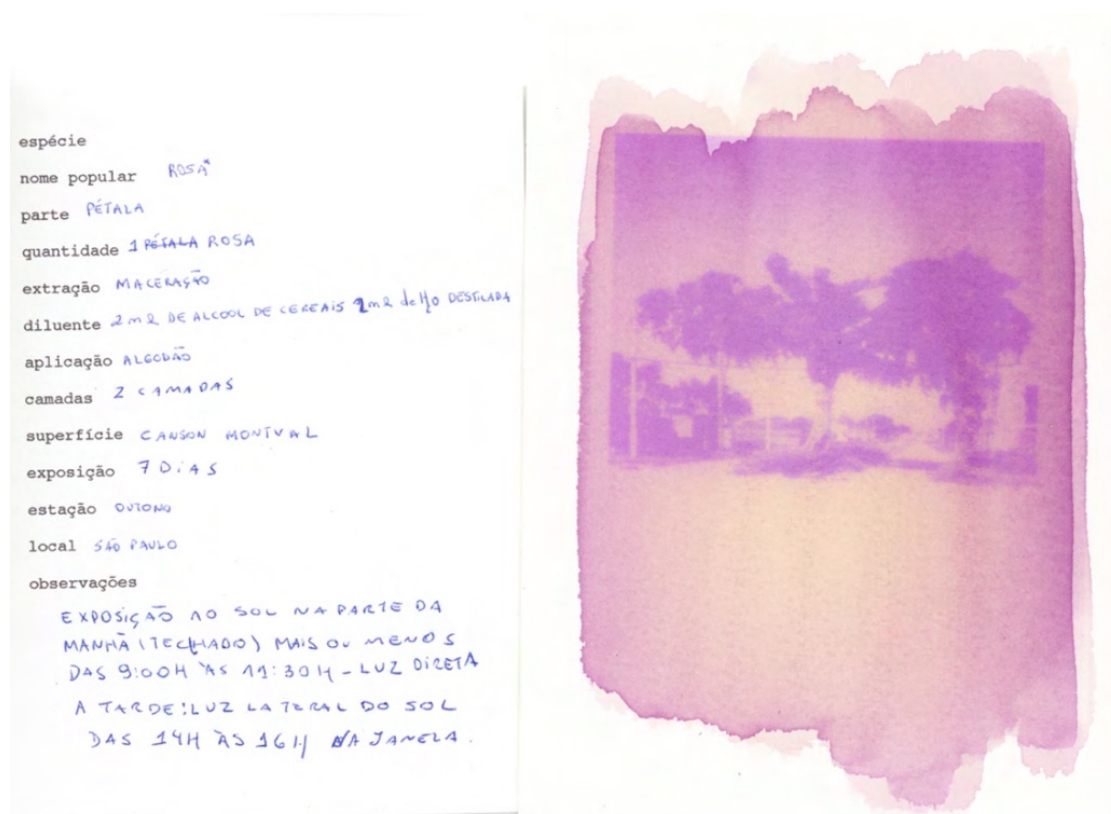 espécie
nome popular ROSA"
parte PÉTALA
quantidade 1 PÉTALA ROSA
extração MACERAÇÃO
diluente 2ml DE ALCOOL DE CEREAIS 2ml de H₂O DESTILADA
aplicação ALGODÃO
camadas 2 CAMADAS
superfície CANSON MONTVAL
exposição 7 DiAS
estação OUTONO
local SÃO PAULO
observações
EXPOSIÇÃO AO SOL NA PARTE DA
MANHÃ (TECHADO) MAIS OU MENOS
DAS 9:00H ÀS 11:30H - LUZ DiRETA
A TARDE: LUZ LATERAL DO SOL
DAS 14H ÀS 16H NA JANELA.